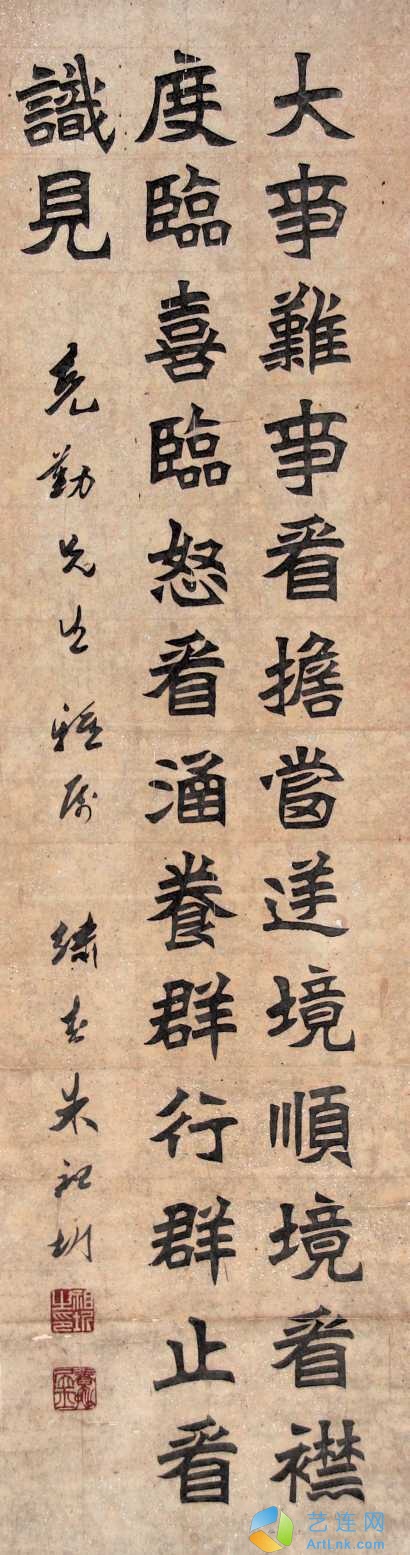 大事難事看擔當逆境順境看襟
度臨喜臨怒看涵養群行群止看
識見
堯勤先生雅屬 繡春朱祖圻
艺连网
ArtLnk.com